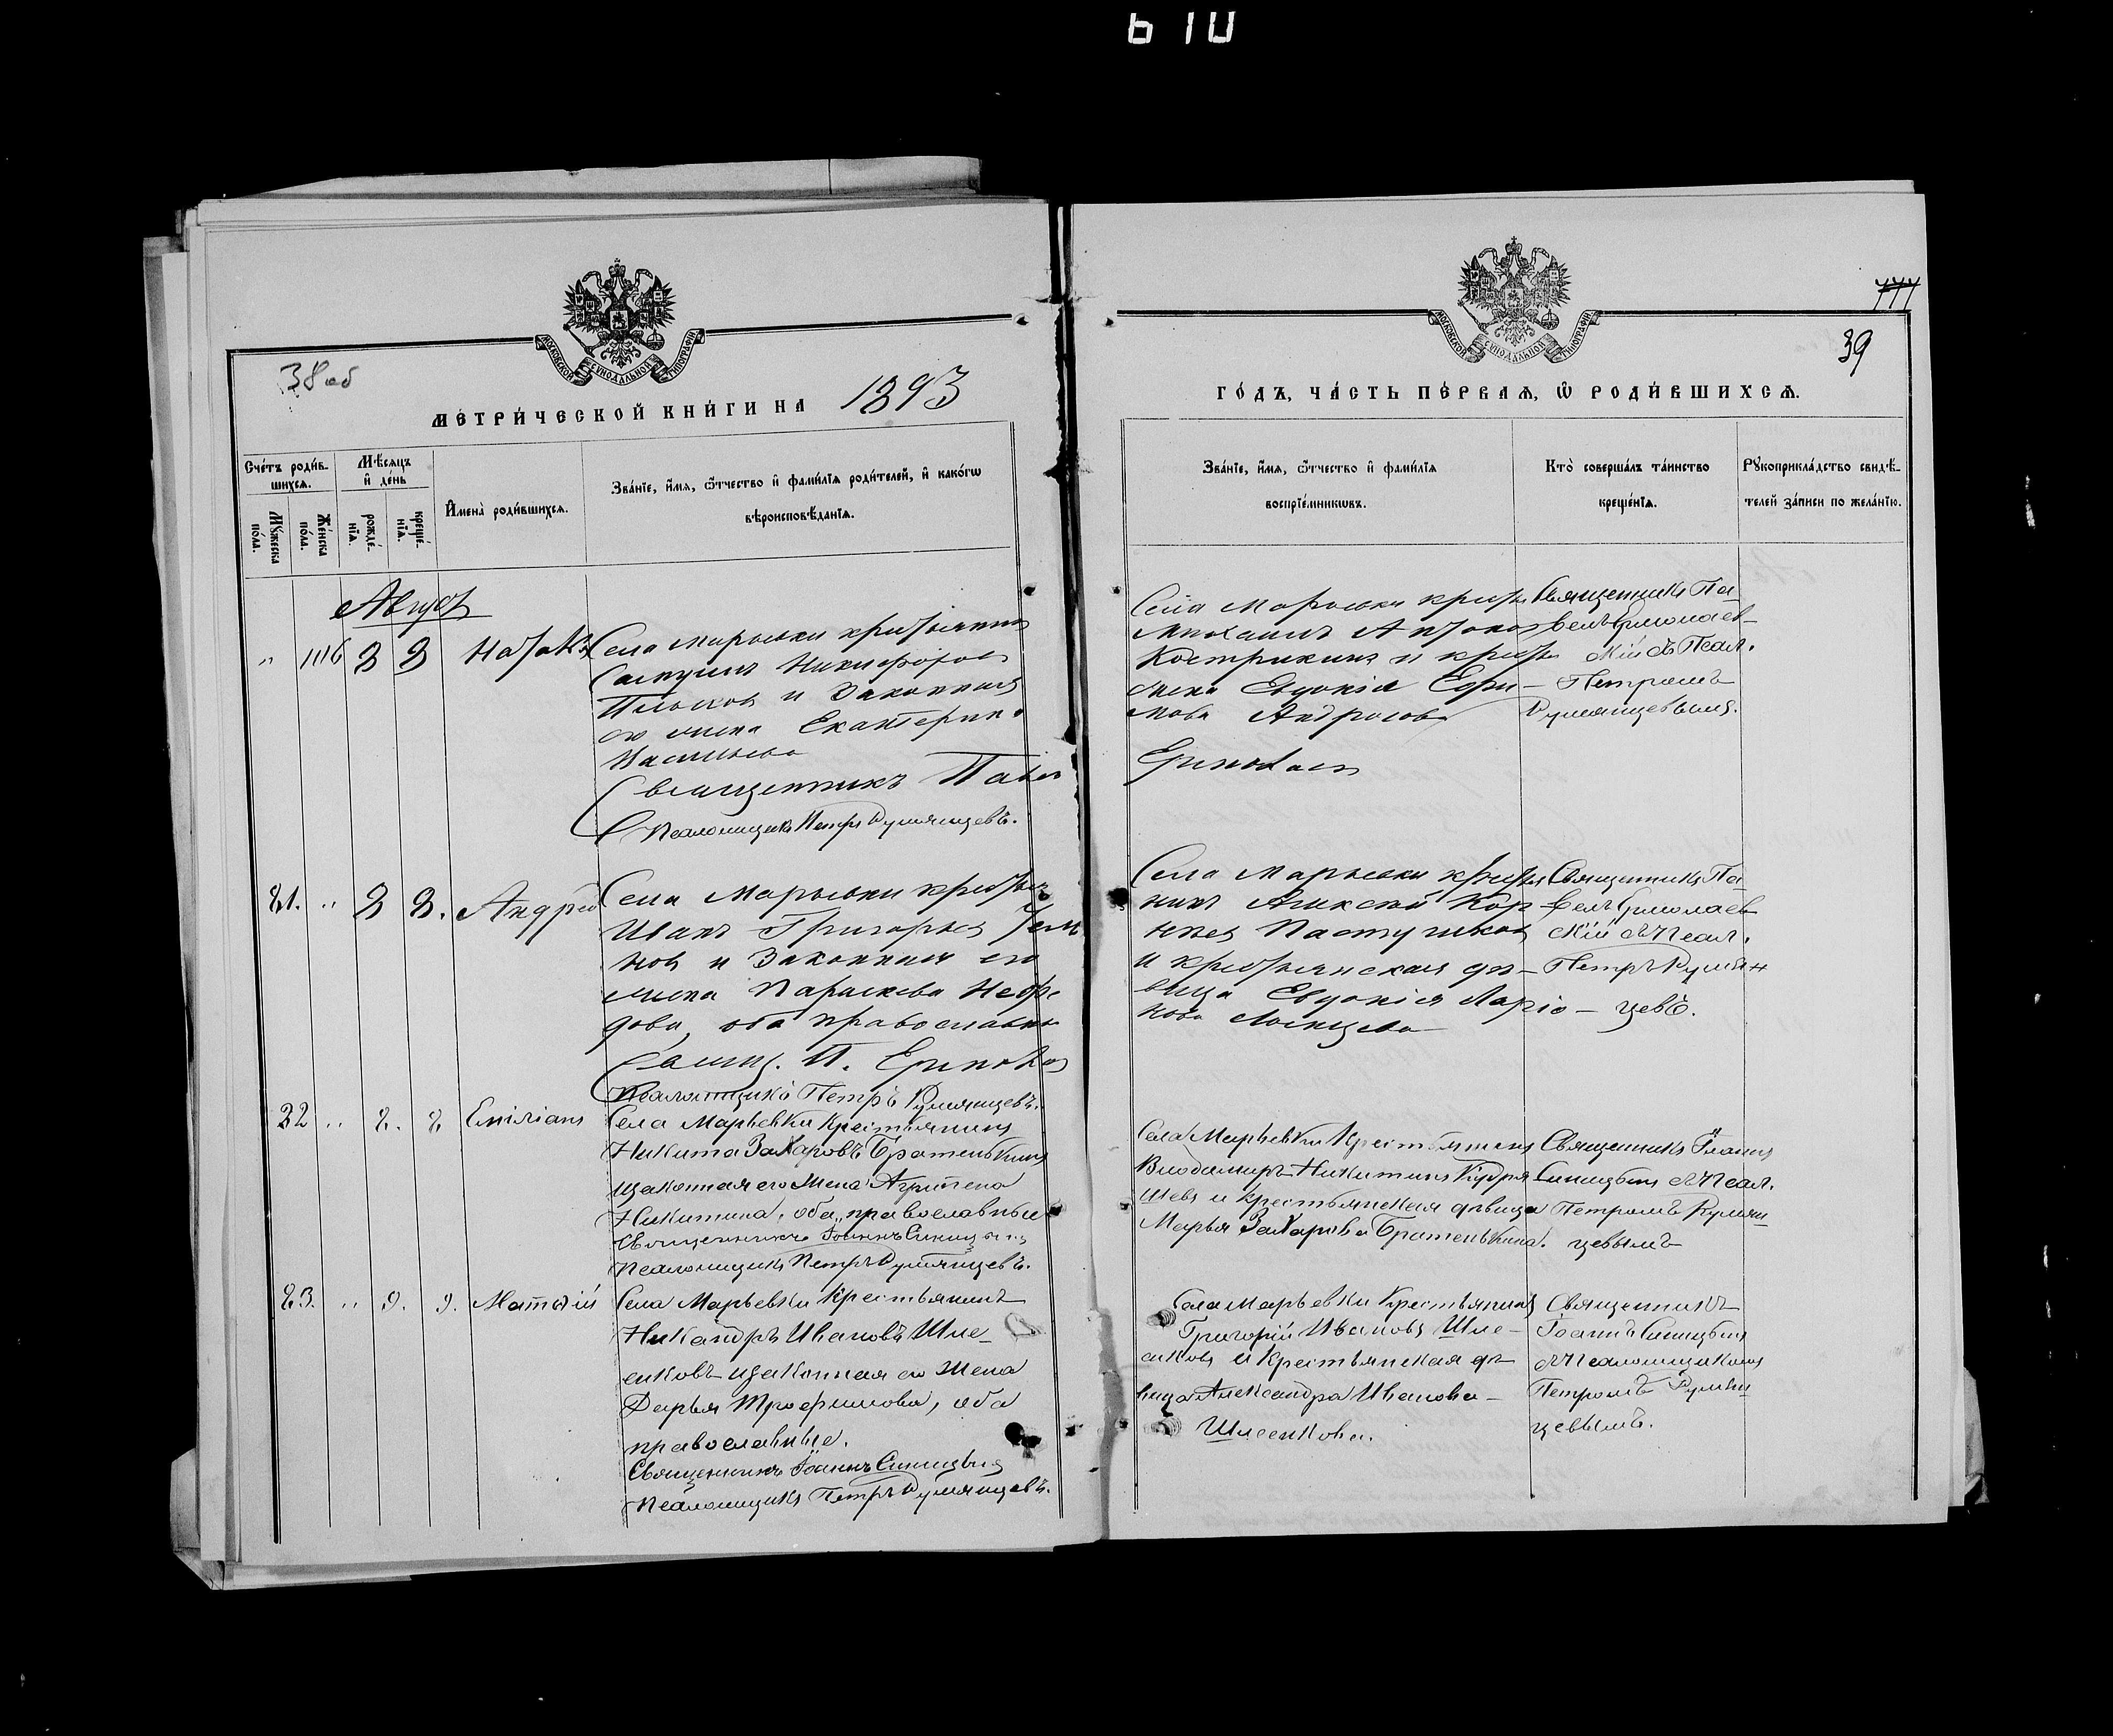 610
МОСКОВСКОЙ СѴНОДАЛЬНОЙ ТИПОГРАФІИ
38 об
МЕТРИЧЕСКОЙ КНИГИ НА 1893
Счетъ родив-
шихся.
Мѣсяцъ
и день
Мужеска пола.
Женска пола.
рожде-
нія.
креще-
нія.
Имена родившихся.
Званіе, имя, отчество и фамилія родителей, и какогѡ
вѣроисповѣданія.
Августъ
" 116 2 2
Села Марьевки крестьянинъ
Никифоровъ
и законная
его жена Екатерина
Васильева
Священникъ Павелъ
Псаломщикъ Петръ Румянцевъ.
81. " 2 2. Андрей
Села Марьевки крестьян
Иванъ Григорьев
нов и законная его
жена Параскева Нефе
дова, оба православные
Свящ. П. Ермолаев
Псаломщикъ Петръ Румянцевъ.
82 " 8. 8 Емиліанъ
Села Марьевки крестьянинъ
Никита Захаровъ Братенькинъ
изаконная его жена Агрипена
Никитина, оба православные
Священникъ Іоаннъ Синицынъ
Псаломщикъ Петръ Румянцевъ.
83. " 9. 9. Матѳій
Села Марьевки Крестьянинъ
Никандръ Ивановъ Шле-
енковъ изаконная его жена
Дарья Трофимова, оба
православные.
Священникъ Іоаннъ Синицынъ
Псаломщикъ Петръ Румянцевъ.
МОСКОВСКОЙ СѴНОДАЛЬНОЙ ТИПОГРАФІИ
39
ГОДЪ, ЧАСТЬ ПЕРВАЯ, Ѡ РОДИВШИХСЯ.
Званіе, имя, отчество и фамилія
воспріемникѡвъ.
Кто совершалъ таинство
крещенія.
Рукоприкладство свидѣ-
телей записи по желанію.
Села Марьевки крестьян
Михаилъ Антонов
Кострикинъ и крестьян
жена Евдокія Ефи-
мова Андросова
Ермолаев
Священникъ Па-
велъ Ермолаев-
скій съ Псал.
Петромъ
Румянцевымъ.
Села Марьевки крестья
нинъ Алексѣй Кор-
нѣев Пастушков
и крестьянская дѣ-
вица Евдокія Ларіо-
нова
Священникъ Па-
велъ Ермолаев
скій съ Псал.
Петръ Румян
цевъ.
Села Марьевки Крестьянинъ
Владимиръ Никитинъ Кудря
шевъ и крестьянская дѣвица
Марья Захарова Братенькина.
Священникъ Іоаннъ
Синицынъ съ Псал.
Петромъ Румян
цевымъ
Села Марьевки Крестьянинъ
Григорій Ивановъ Шле-
енковъ и Крестьянская дѣ-
вица Александра Иванова-
Шлеенкова.
Священникъ
Іоаннъ Синицынъ
съ Псаломщикомъ
Петромъ Румян
цевымъ.